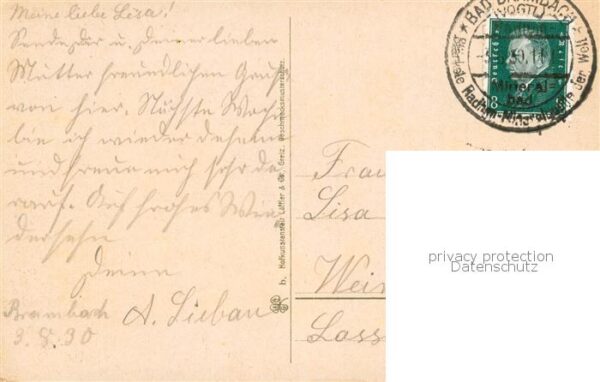 Meine liebe Lisa!
Sende dir u. deiner lieben
Mutter freundlichen Gruß
von hier. Nächste Woche
bin ich wieder daheim
und freue mich sehr da
rauf. Auf frohes Wie
dersehn
Deine
A. Lieban
Brambach
3. 8. 30
b. Hofkunstanstalt Löffler & Co., Greiz.
BAD BRAMBACH
(VOGTL.)
Mineral=
bad
Radium-Mineralquelle der Welt
Deutsches Reich
8
Frau
Lisa
Wei
Loss
privacy protection
Datenschutz